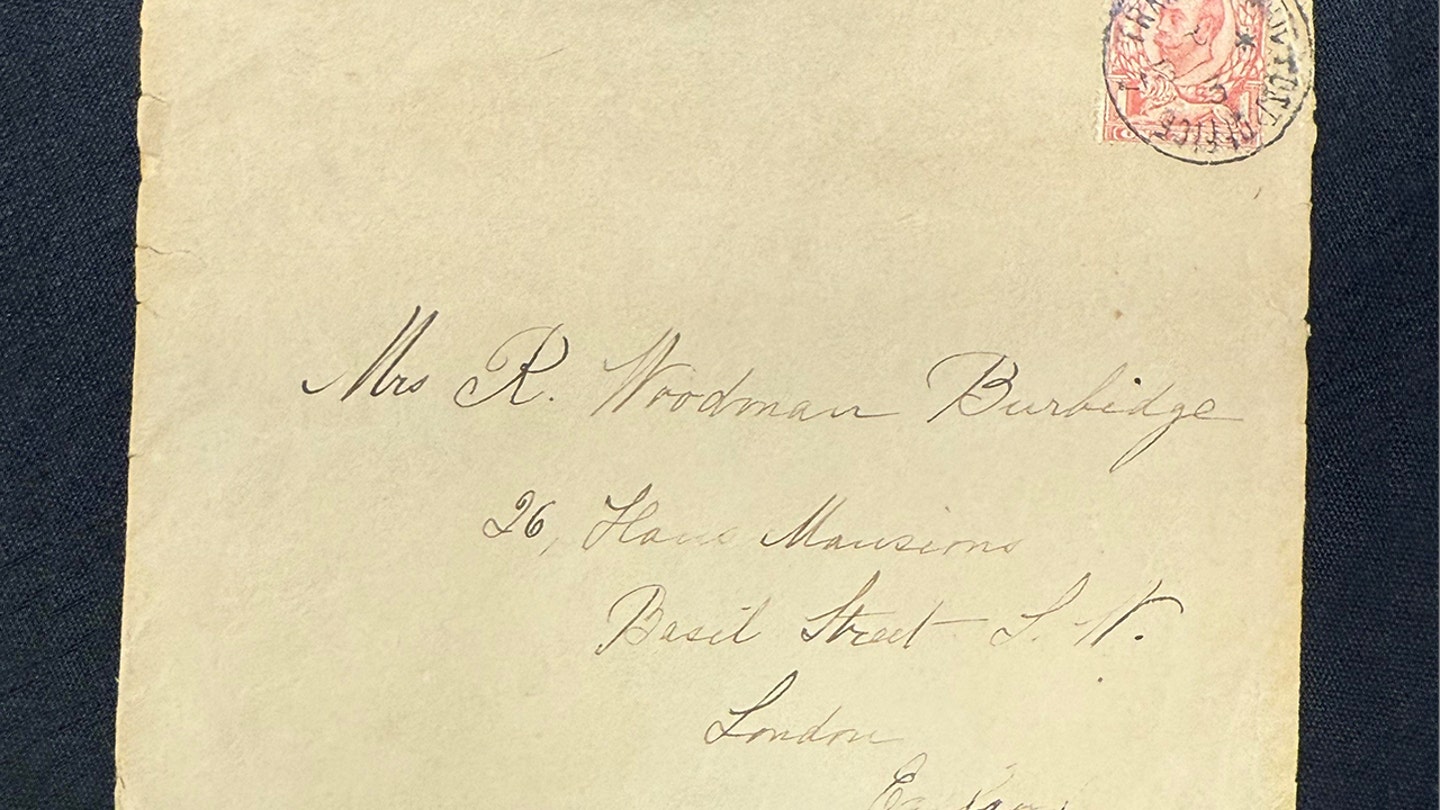 Mrs R. Woodman Burbidge
26, Hans Mansions
Basil Street S. W.
London